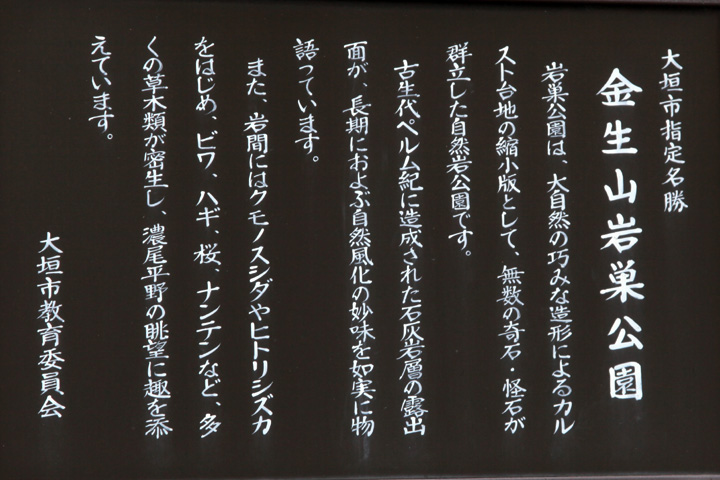 大垣市指定名勝
金生山岩巣公園
岩巣公園は、大自然の巧みな造形によるカル
スト台地の縮小版として、無数の奇石・怪石が
群立した自然岩公園です。
古生代ペルム紀に造成された石灰岩層の露出
面が、長期におよぶ自然風化の妙味を如実に物
語っています。
また、岩間にはクモノスシダやヒトリシズカ
をはじめ、ビワ、ハギ、桜、ナンテンなど、多
くの草木類が密生し、濃尾平野の眺望に趣を添
えています。
大垣市教育委員会